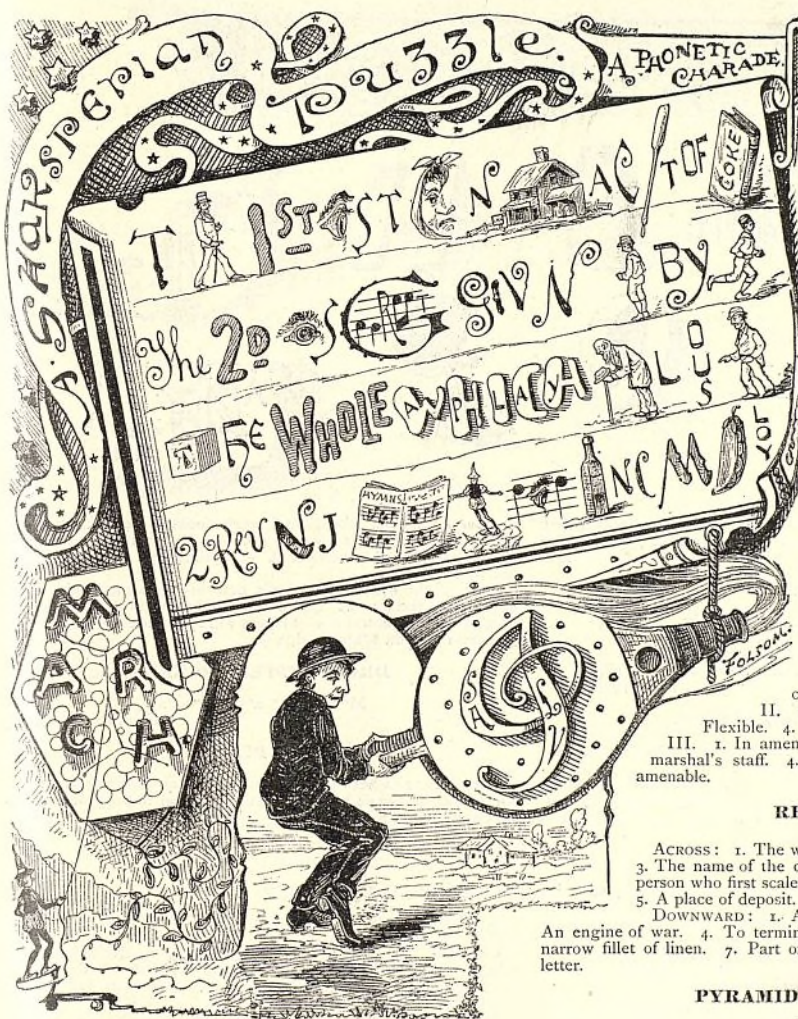 A SHAKSPERIAN PUZZLE.
A PHONETIC CHARADE.
T 1ST ST N AC T OF COKE
The 2D S G GIVN BY
THE WHOLE L OUS
2 REV N J HYMNS N C M YOL
MARCH.
FOLSOM.
II.
Flexible. 4.
III. 1. In amen
marshal's staff. 4.
amenable.
ACROSS: 1. The w
3. The name of the
person who first scale
5. A place of deposit.
DOWNWARD: 1. A
An engine of war. 4. To termin
narrow fillet of linen. 7. Part o
letter.
PYRAMID